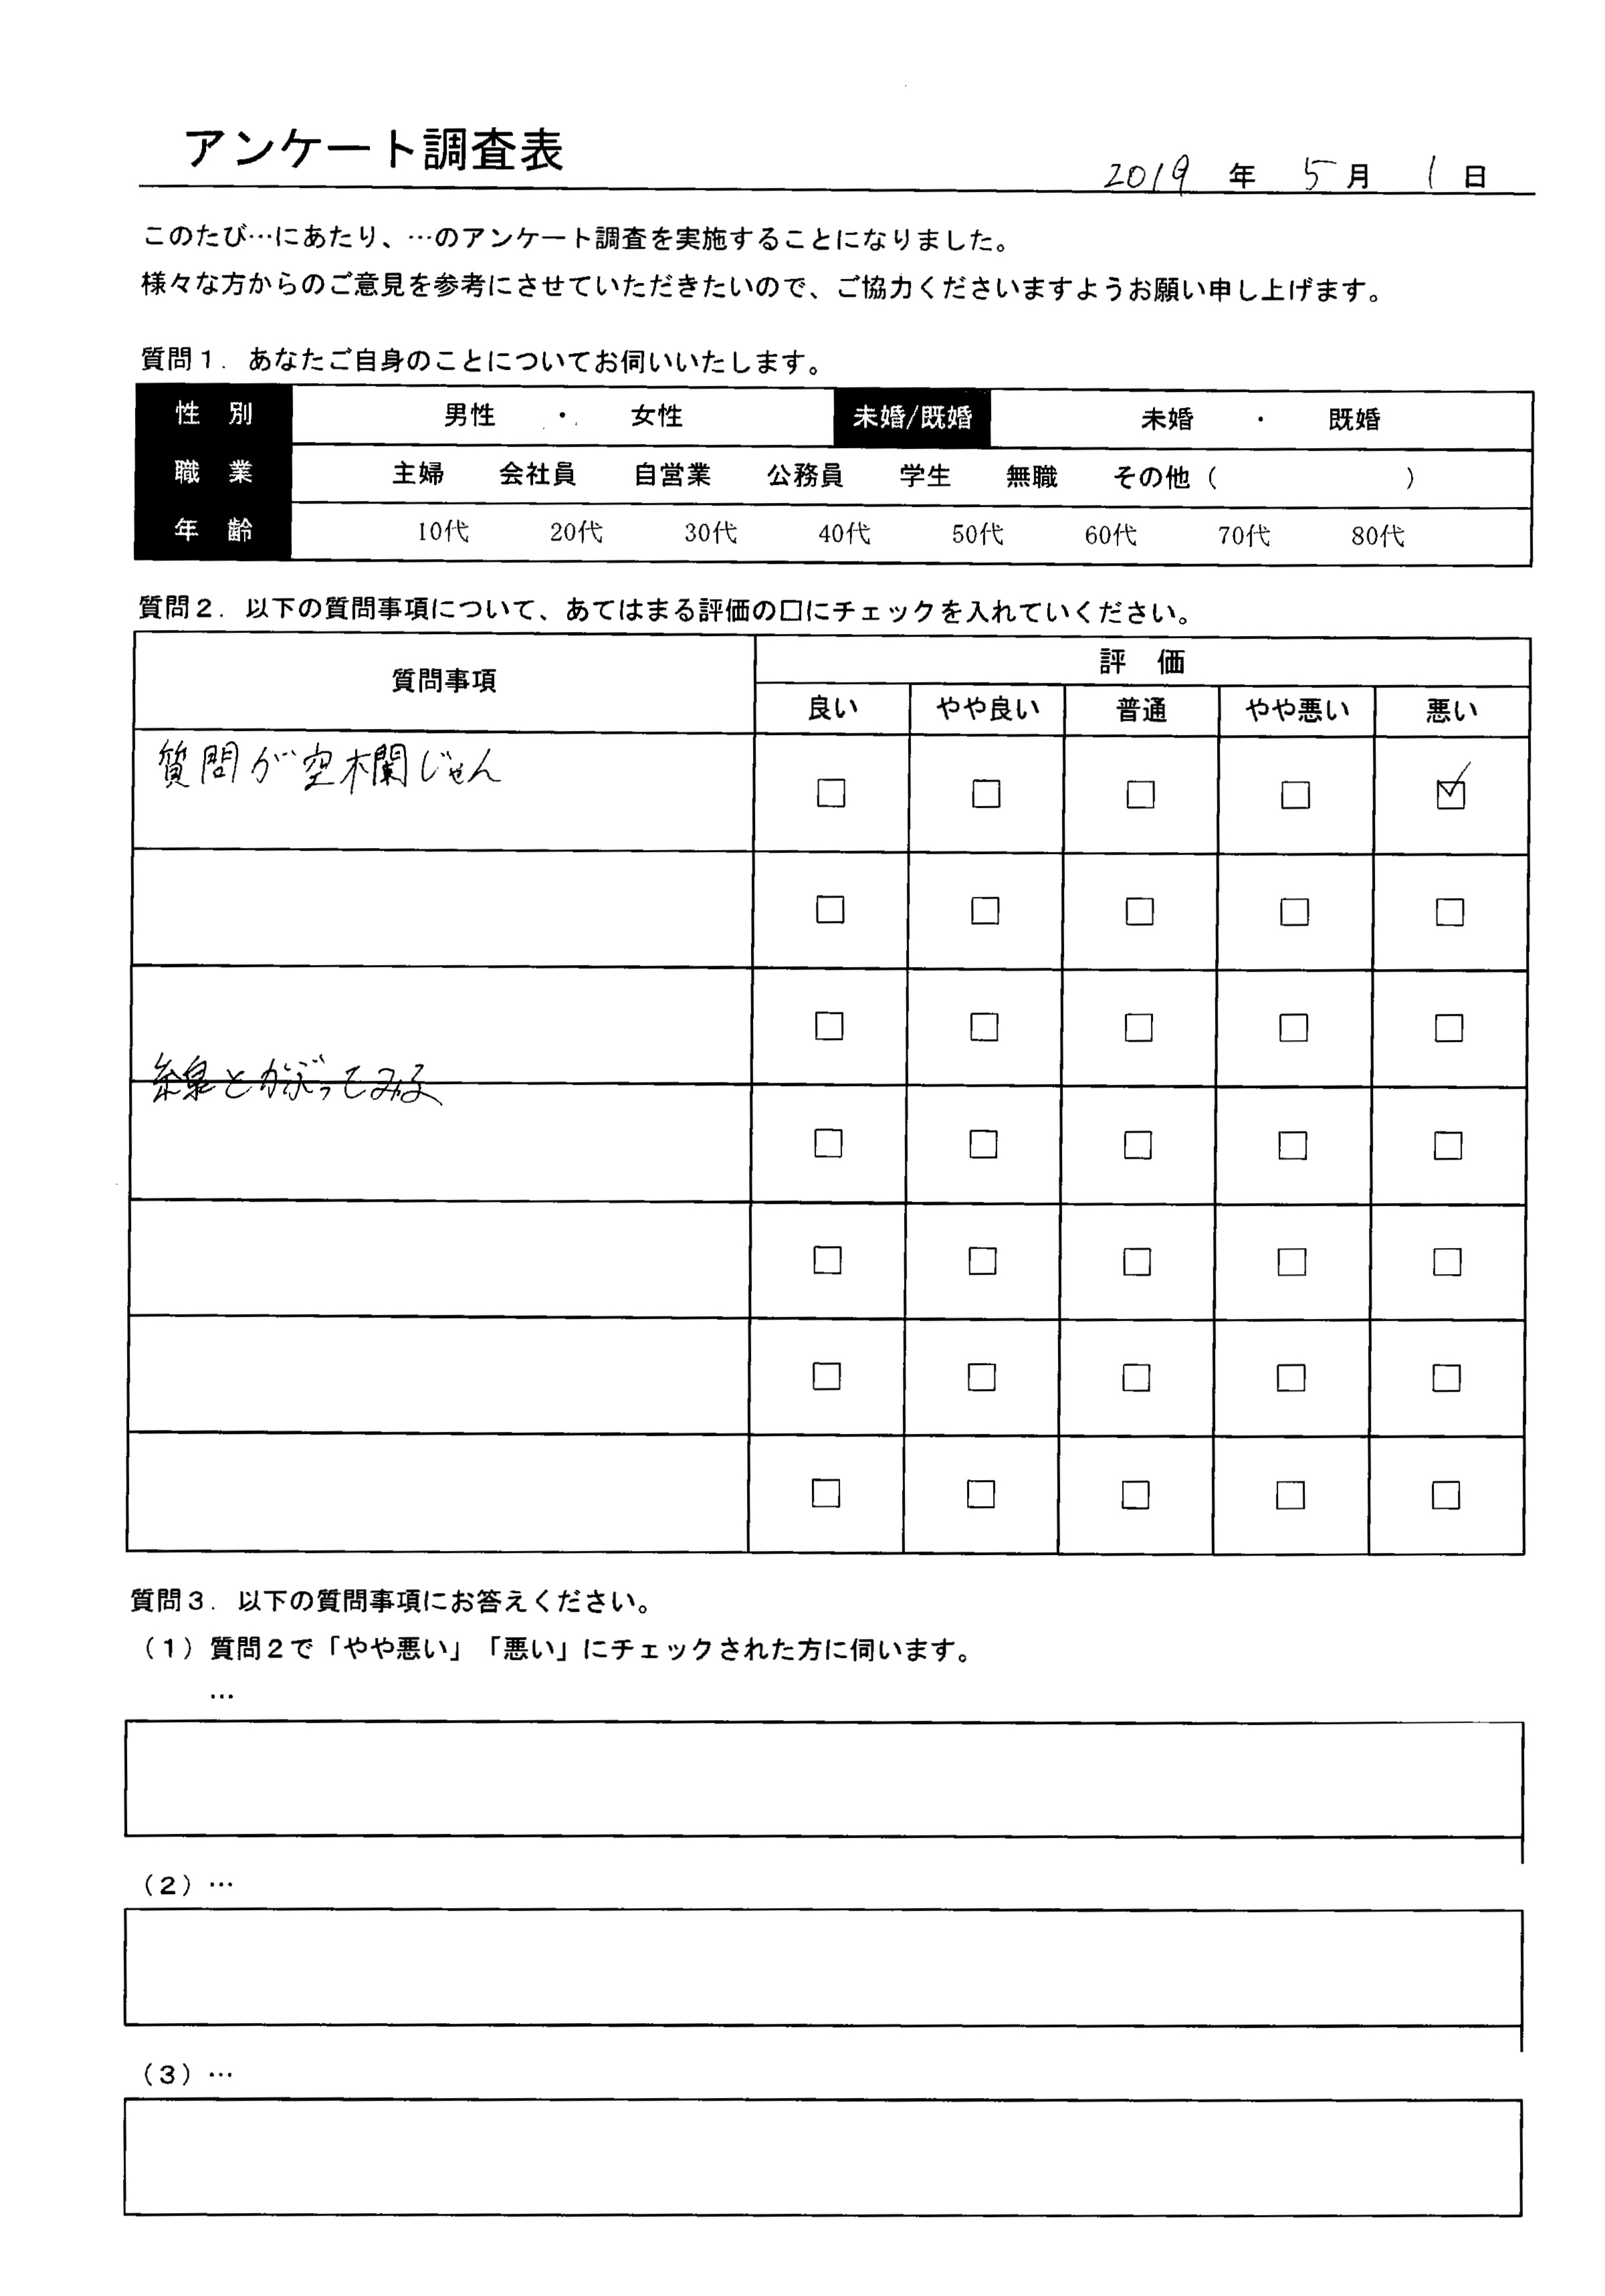 アンケート調査表
2019 年 5 月 1 日
このたび…にあたり、…のアンケート調査を実施することになりました。
様々な方からのご意見を参考にさせていただきたいので、ご協力くださいますようお願い申し上げます。
質問１．あなたご自身のことについてお伺いいたします。
性 別 男性 ・ 女性 未婚/既婚 未婚 ・ 既婚
職 業 主婦 会社員 自営業 公務員 学生 無職 その他（ ）
年 齢 10代 20代 30代 40代 50代 60代 70代 80代
質問２．以下の質問事項について、あてはまる評価の□にチェックを入れていください。
質問事項 評 価
良い やや良い 普通 やや悪い 悪い
質問が空欄じゃん □ □ □ □ ☑
□ □ □ □ □
□ □ □ □ □
線とかぶってみる
□ □ □ □ □
□ □ □ □ □
□ □ □ □ □
□ □ □ □ □
質問３．以下の質問事項にお答えください。
（１）質問２で「やや悪い」「悪い」にチェックされた方に伺います。
…
（２）…
（３）…